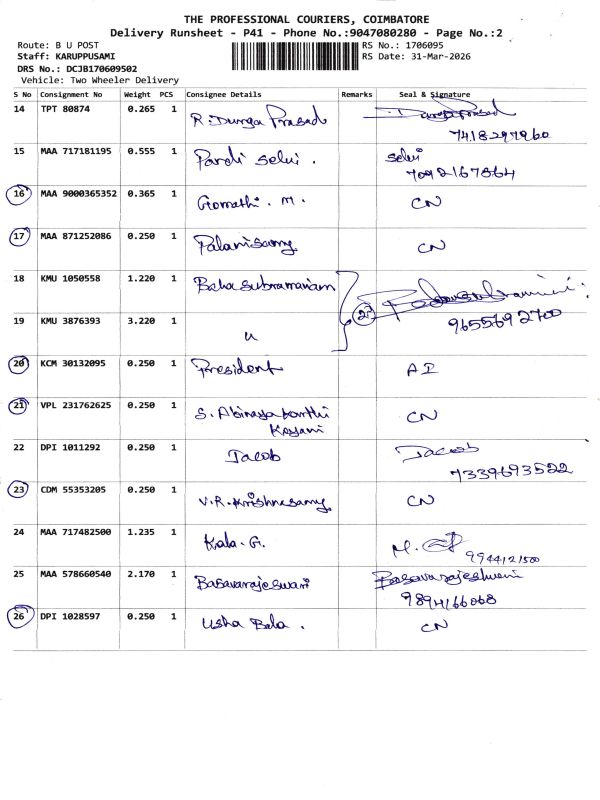 THE PROFESSIONAL COURIERS, COIMBATORE
Delivery Runsheet - P41 - Phone No.:9047080280 - Page No.:2
Route: B U POST RS No.: 1706095
Staff: KARUPPUSAMI RS Date: 31-Mar-2026
DRS No.: DCJB170609502
Vehicle: Two Wheeler Delivery
S No Consignment No Weight PCS Consignee Details Remarks Seal & Signature
14 TPT 80874 0.265 1 R. Durga Prasad Durga Prasad
7418297960
15 MAA 717181195 0.555 1 Pandi Selvi . Selvi
7092167864
16 MAA 9000365352 0.365 1 Gomathi . M. CN
17 MAA 871252086 0.250 1 Palanisamy CN
18 KMU 1050558 1.220 1 Balasubramaniam
19 KMU 3876393 3.220 1 u 2 9655692700
20 KCM 30132095 0.250 1 President AI
21 VPL 231762625 0.250 1 S. Abinaya CN
22 DPI 1011292 0.250 1 Jacob Jacob
7339693522
23 CDM 55353205 0.250 1 V.R. Krishnasamy CN
24 MAA 717482500 1.235 1 Kala. G. M.
9944121500
25 MAA 578660540 2.170 1 Basavarajeswari Basavarajeshwari
9894166068
26 DPI 1028597 0.250 1 Usha Bala . CN